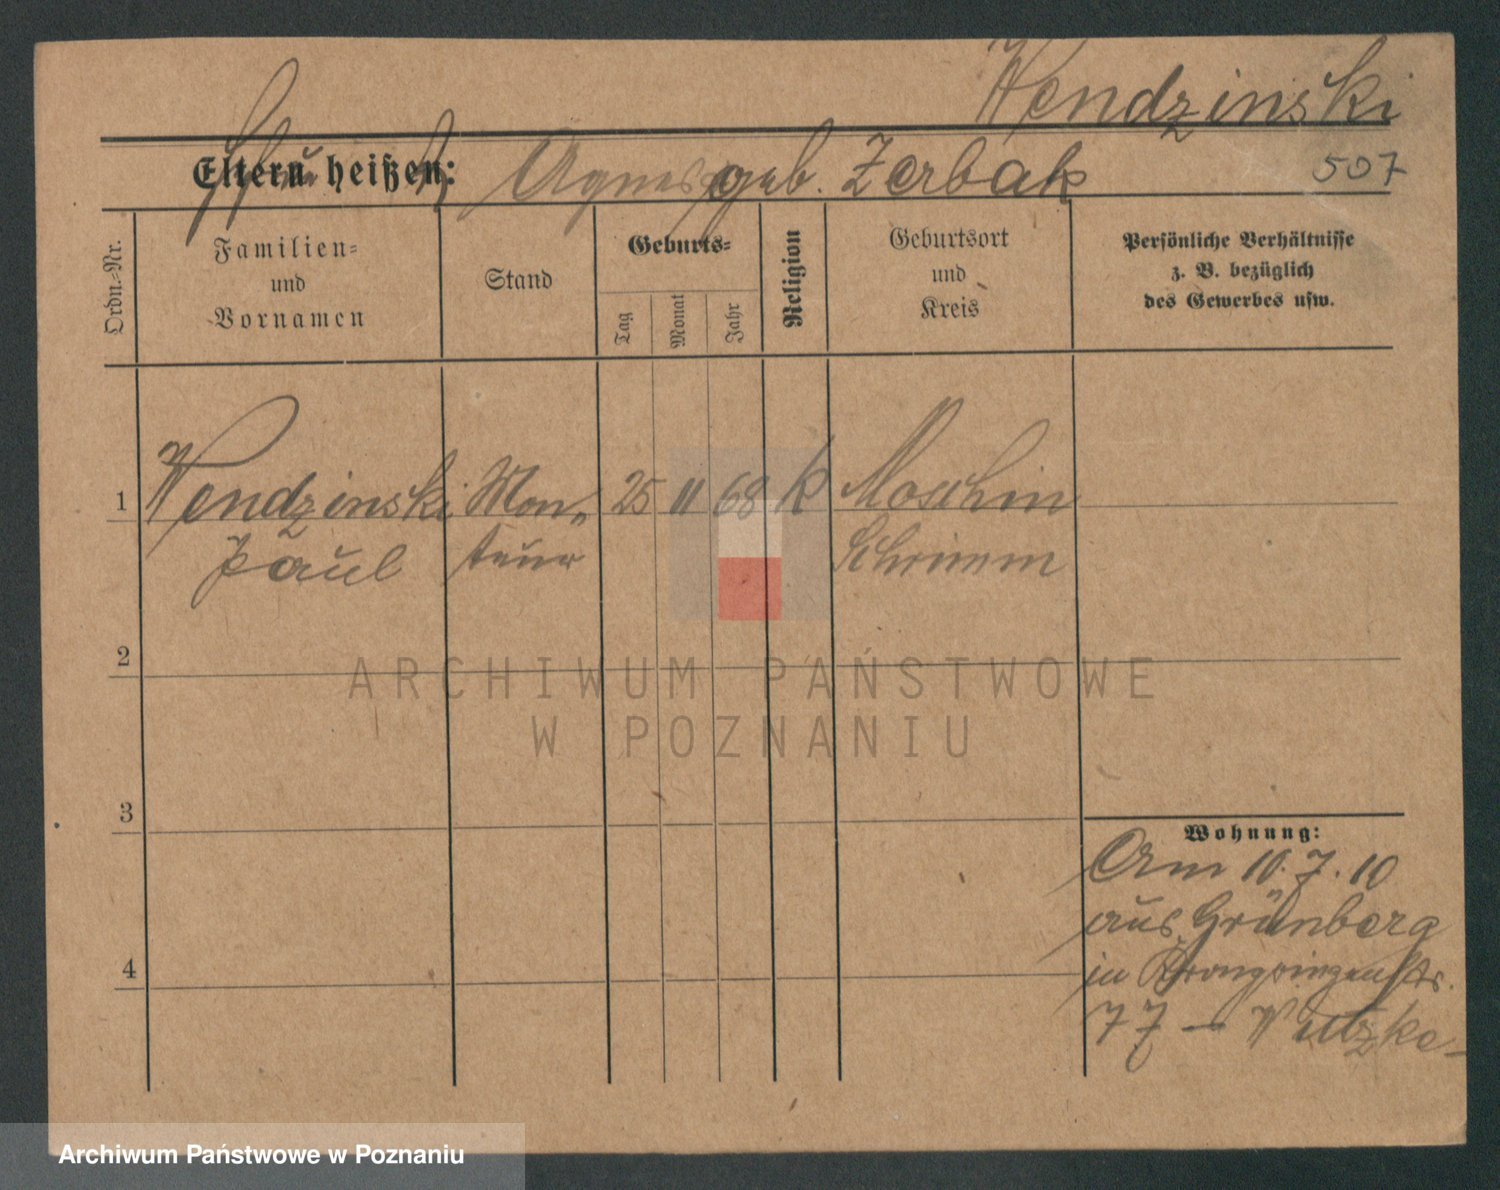 Wendzinski
Eltern heißen: Agnes geb. Zerbak 507
Ordn.-Nr.
Familien-
und
Vornamen
Stand
Geburts-
Tag
Monat
Jahr
Religion
Geburtsort
und
Kreis
Persönliche Verhältnisse
z. B. bezüglich
des Gewerbes usw.
1 Wendzinski Mon„ 25 11 68 k Moschin
Paul teur Schrimm
2
3
Wohnung:
Am 10.7.10
aus Grünberg
4
in Kronprinzenstr.
77 –
ARCHIWUM PAŃSTWOWE
W POZNANIU
Archiwum Państwowe w Poznaniu